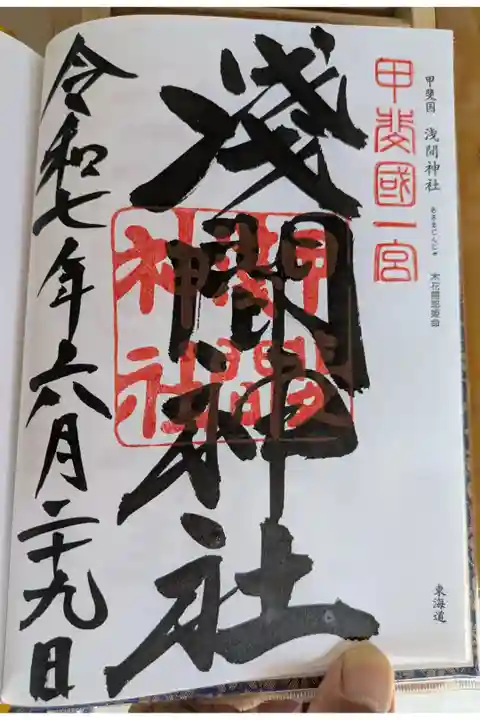 甲斐国 浅間神社
あさまじんじゃ
木花開耶姫命
甲斐國一宮
淺間神社
令和七年六月二十九日
東海道